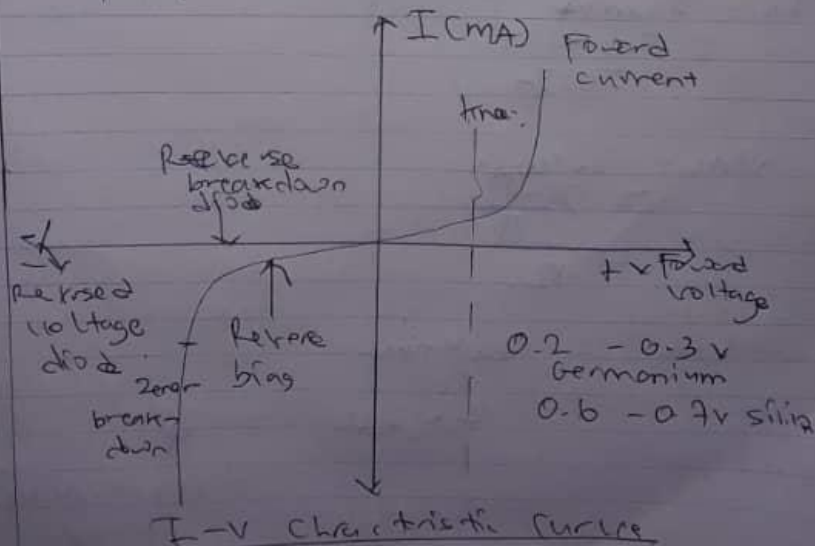 I (mA)
Foword
current
knee.
Reeverse
breakdown
diode
-v
+v Foword
voltage
Reversed
voltage
diode
Revere
bias
Zener
break-
down
0.2 - 0.3 v
Germonium
0.6 - 0.7v
I-V Charctristic Curve